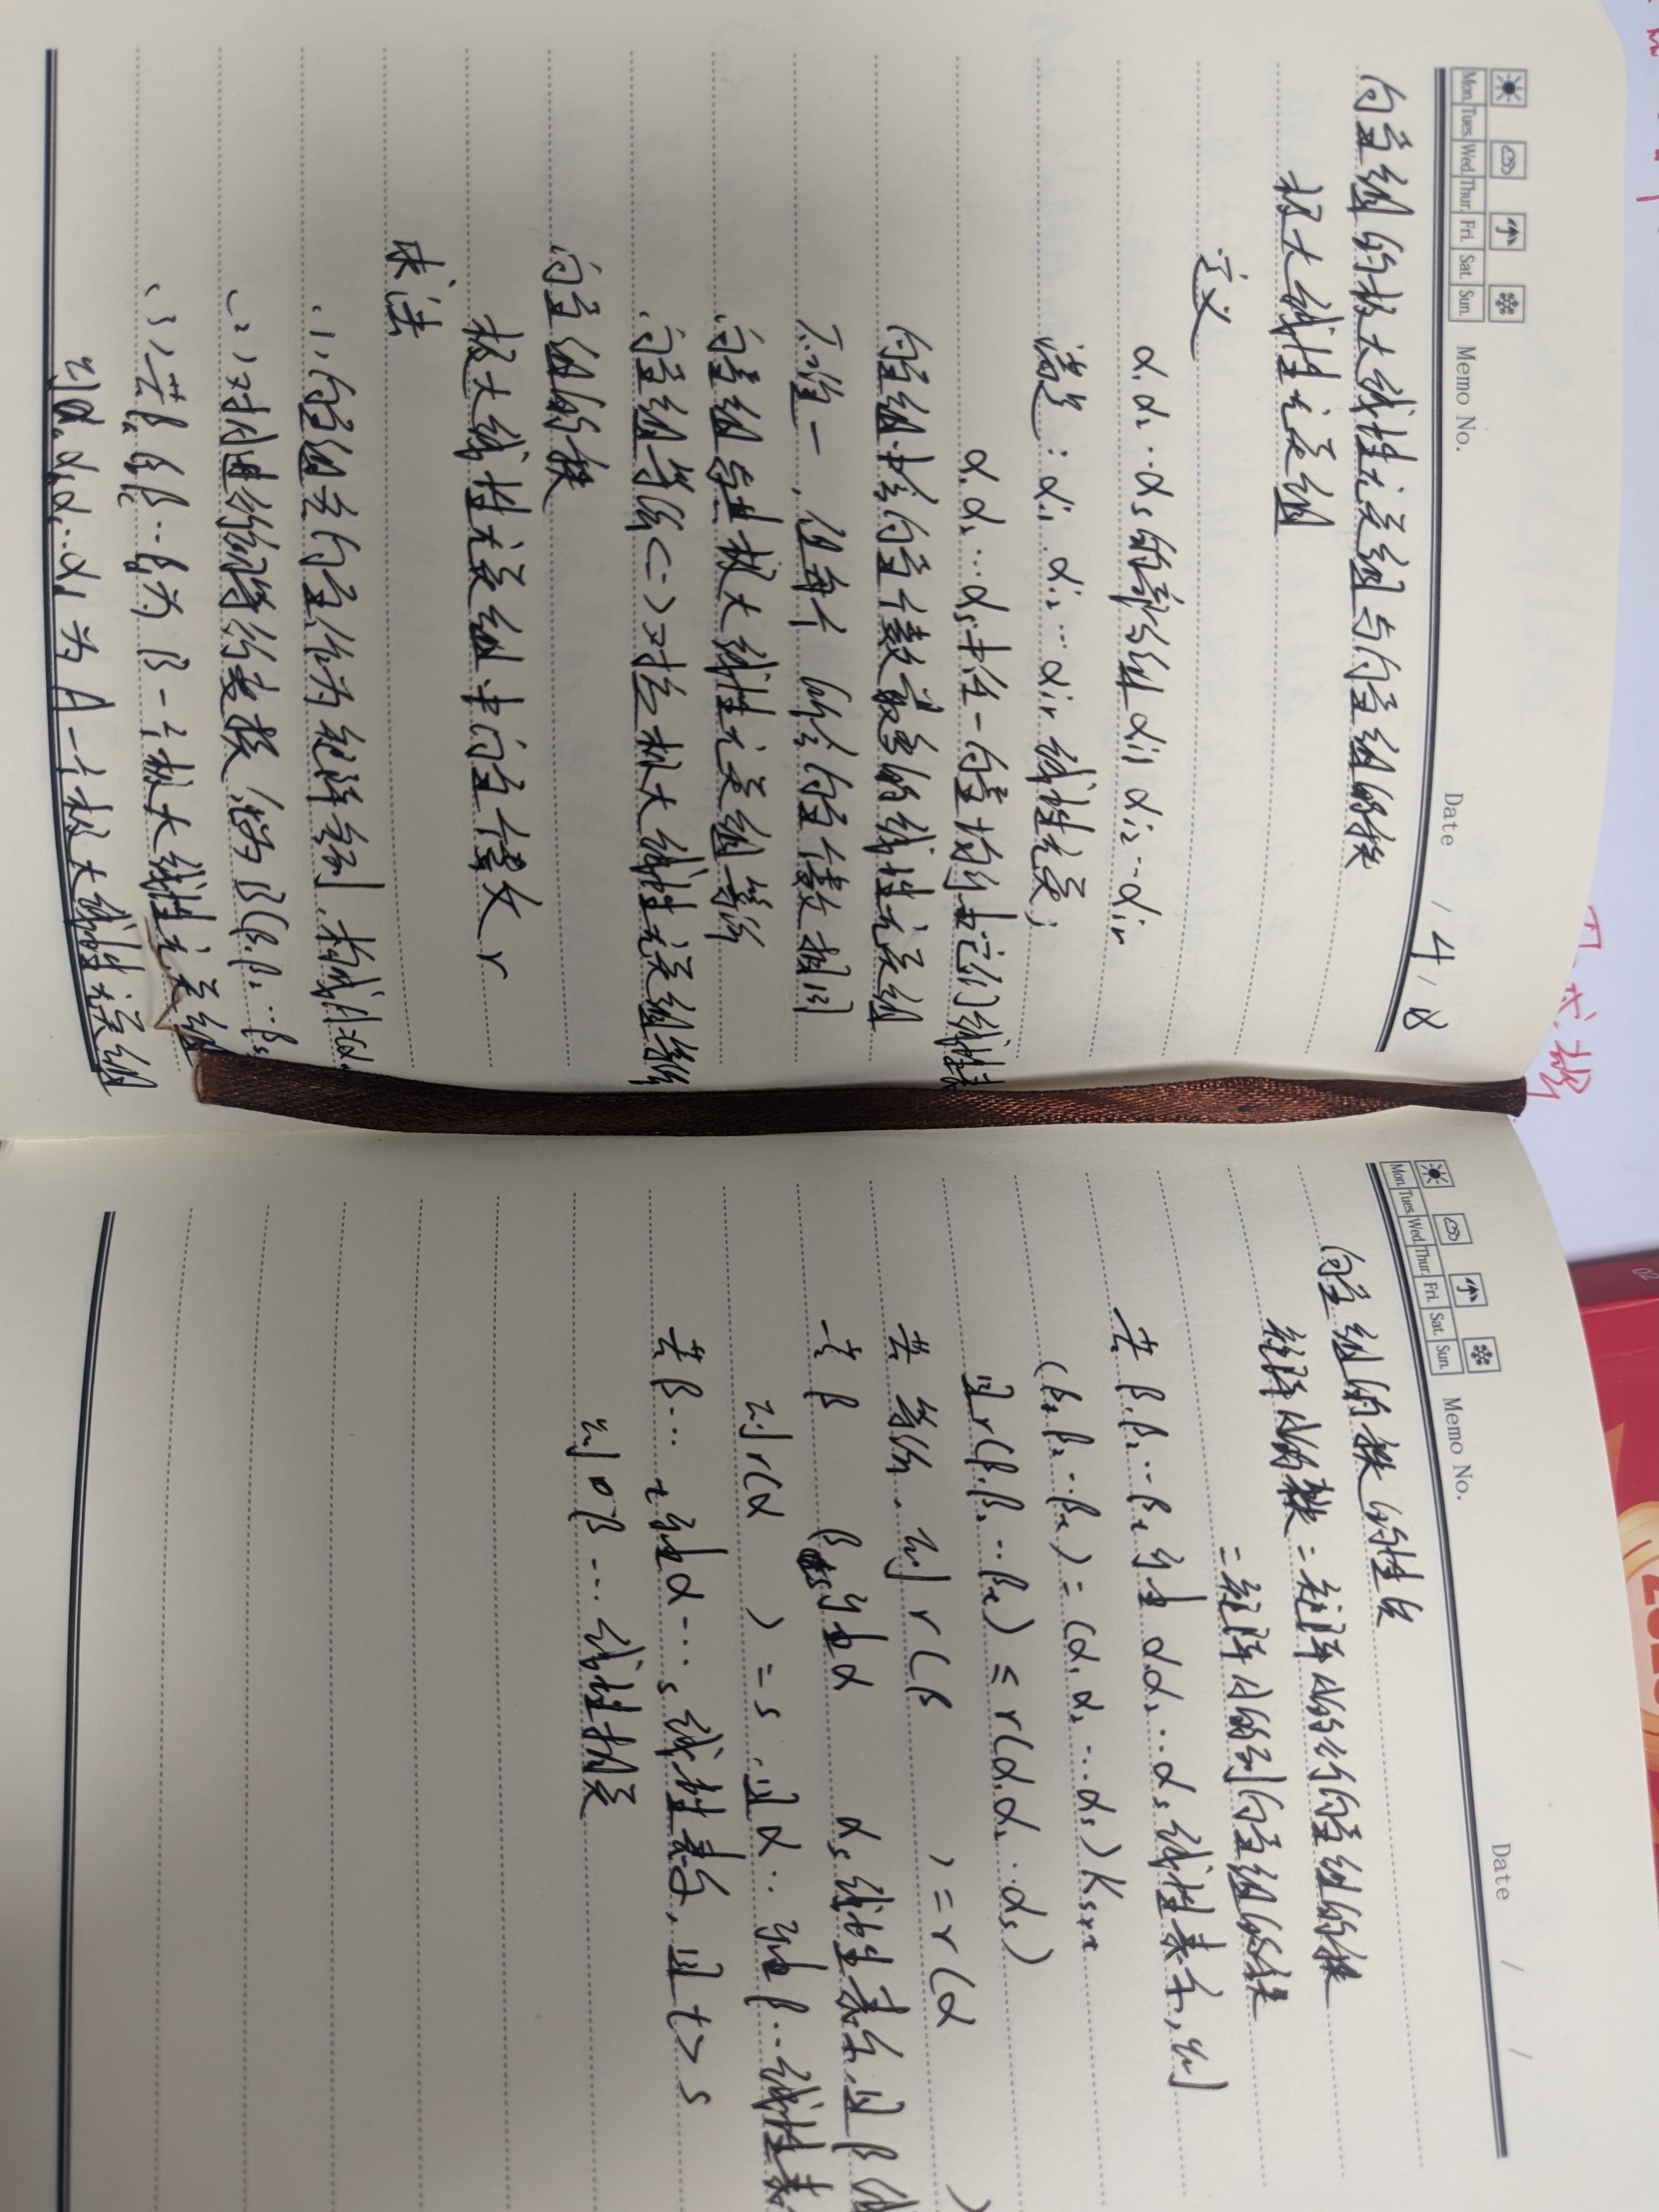 Mon. Tues. Wed. Thur. Fri. Sat. Sun.
Memo No.
Date / 4 / 8
向量组的极大线性无关组与向量组的秩
极大线性无关组
定义
α₁ α₂ … αs的部分组 αi₁ αi₂ … αir
满足：αi₁ αi₂ … αir 线性无关；
α₁ α₂ … αs中任一向量均可由它们线性表
向量组中所含向量个数最多的线性无关组
不唯一，但每个所含向量个数相同
向量组与其极大线性无关组等价
向量组等价<=>对应极大线性无关组等价
向量组的秩
极大线性无关组中向量个数 r
求法
(1)向量组各向量作为矩阵各列，构成A=(α₁
(2)对A进行初等行变换，得到B(β₁ β₂ … βs
(3)若 β β β … β为B一个极大线性无关组
则α α α … α 为A一个极大线性无关组
Mon. Tues. Wed. Thur. Fri. Sat. Sun.
Memo No.
Date / /
向量组的秩的性质
矩阵A的秩=矩阵A的行向量组的秩
=矩阵A的列向量组的秩
若 β₁ β₂ … βt 可由 α₁ α₂ … αs 线性表示，则
(β₁ β₂ … βt) = (α₁ α₂ … αs) Ks×t
则 r(β₁ β₂ … βt) ≤ r(α₁ α₂ … αs)
若等价，则 r(β ) = r(α )
若 β β 可由α αs 线性表示，且
则 r(α ) = s，且α … 可由β … 线性表
若β … t 可由α … s 线性表示，且 t > s
则 β … 线性相关